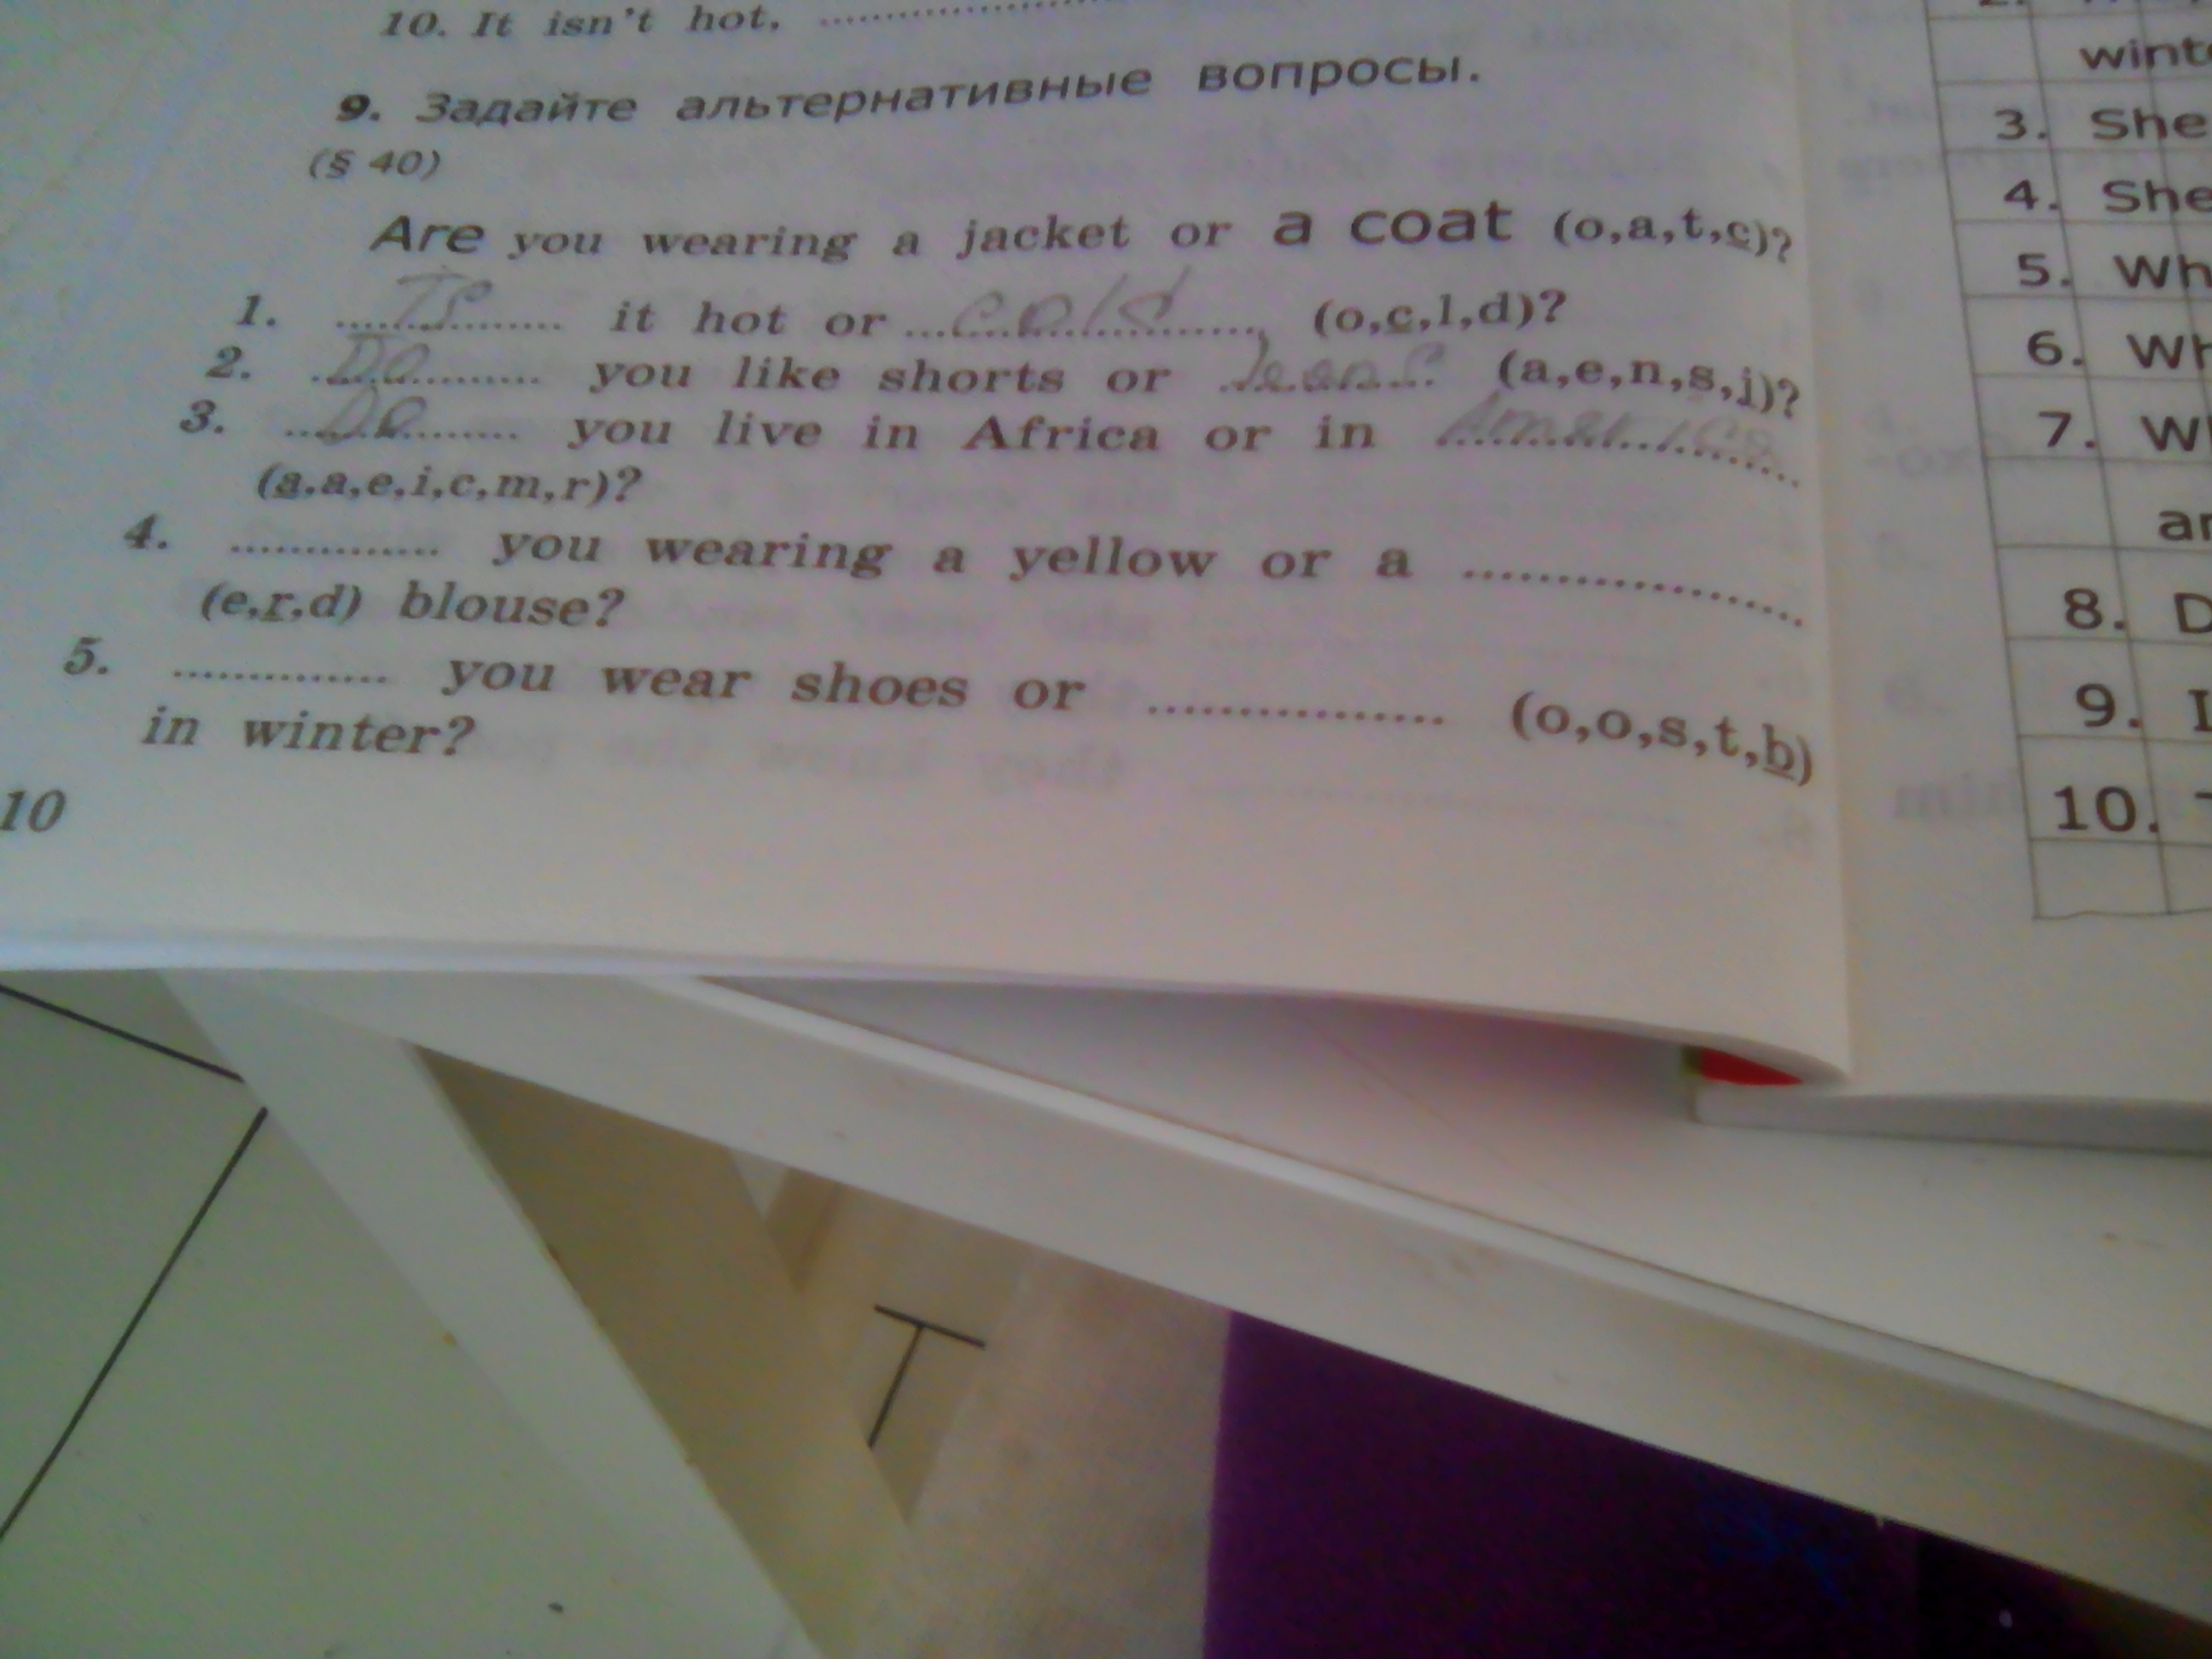 10. It isn't hot, ........................
9. Задайте альтернативные вопросы.
(§ 40)
Are you wearing a jacket or a coat (o,a,t,c)?
1. Is it hot or cold (o,c,l,d)?
2. Do you like shorts or Jeans (a,e,n,s,j)?
3. Do you live in Africa or in America
(a,a,e,i,c,m,r)?
4. .............. you wearing a yellow or a ........................
(e,r,d) blouse?
5. .............. you wear shoes or .................... (o,o,s,t,b)
in winter?
10
3. She
4. She
5. Wh
6. Wh
7.
8. D
9. I
10.